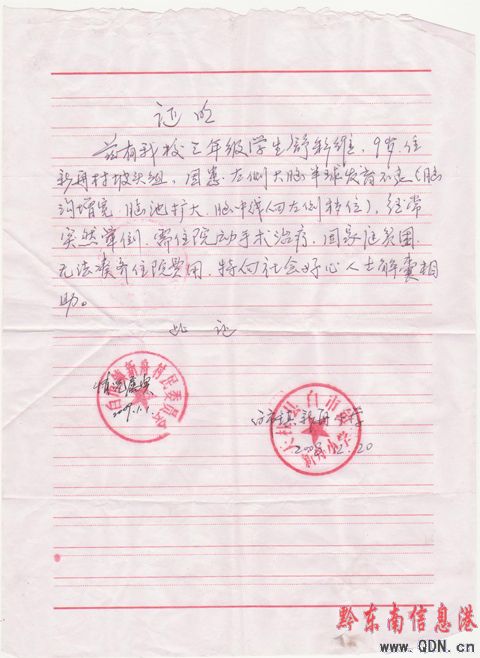 证明
兹有我校三年级学生舒彩维，9岁，住
新舟村坡头组，因患左侧大脑半球发育不良（脑
沟增宽、脑池扩大、脑中线向左侧移位），经常
突然晕倒，需住院动手术治疗，因家庭贫困，
无法凑齐住院费用，特向社会好心人士解囊相
助。
此证
情况属实
2009.1.1
白市镇新舟村民委员会
白市镇新舟小学
2008.12.20
天柱县白市镇
新舟小学
黔东南信息港
www.QDN.cn